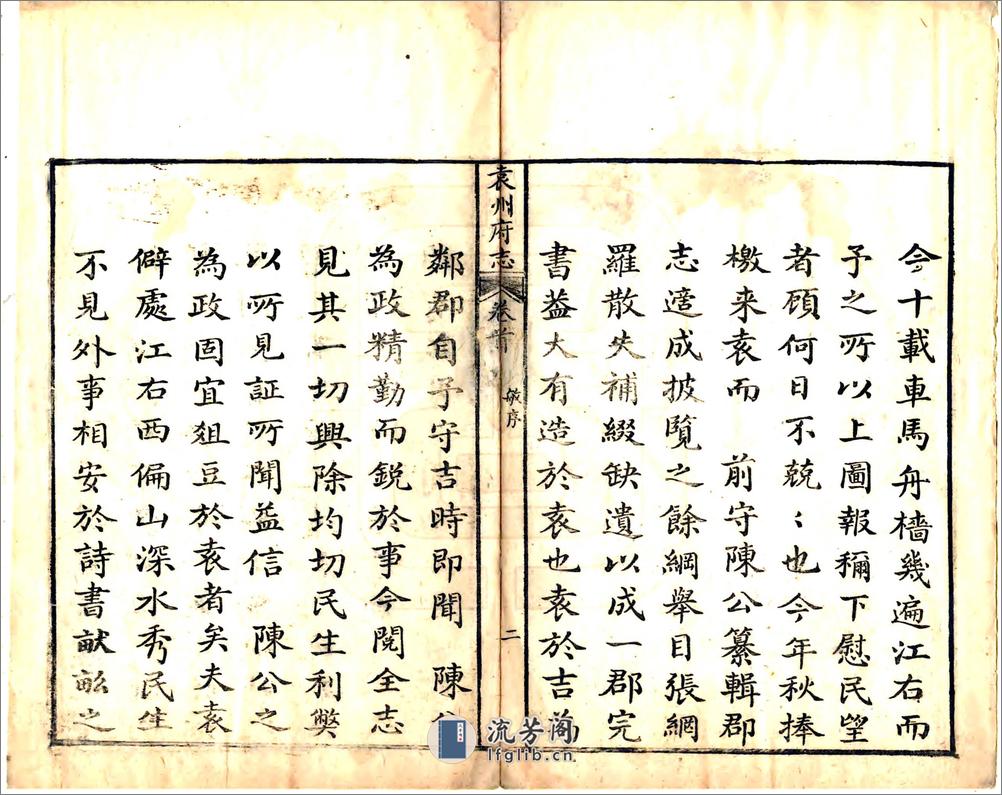 今十載車馬舟檣幾遍江右而
予之所以上圖報稱下慰民望
者顧何日不兢〻也今年秋捧
檄来袁而　前守陳公纂輯郡
志適成披覽之餘綱舉目張網
羅散失補綴缺遺以成一郡完
書益大有造於袁也袁於吉為
袁州府志
卷首
敏序
二
鄰郡自予守吉時即聞　陳公
為政精勤而銳於事今閱全志
見其一切興除均切民生利弊
以所見証所聞益信　陳公之
為政固宜俎豆於袁者矣夫袁
僻處江右西偏山深水秀民生
不見外事相安於詩書畎畝之
流芳阁
lfglib.cn